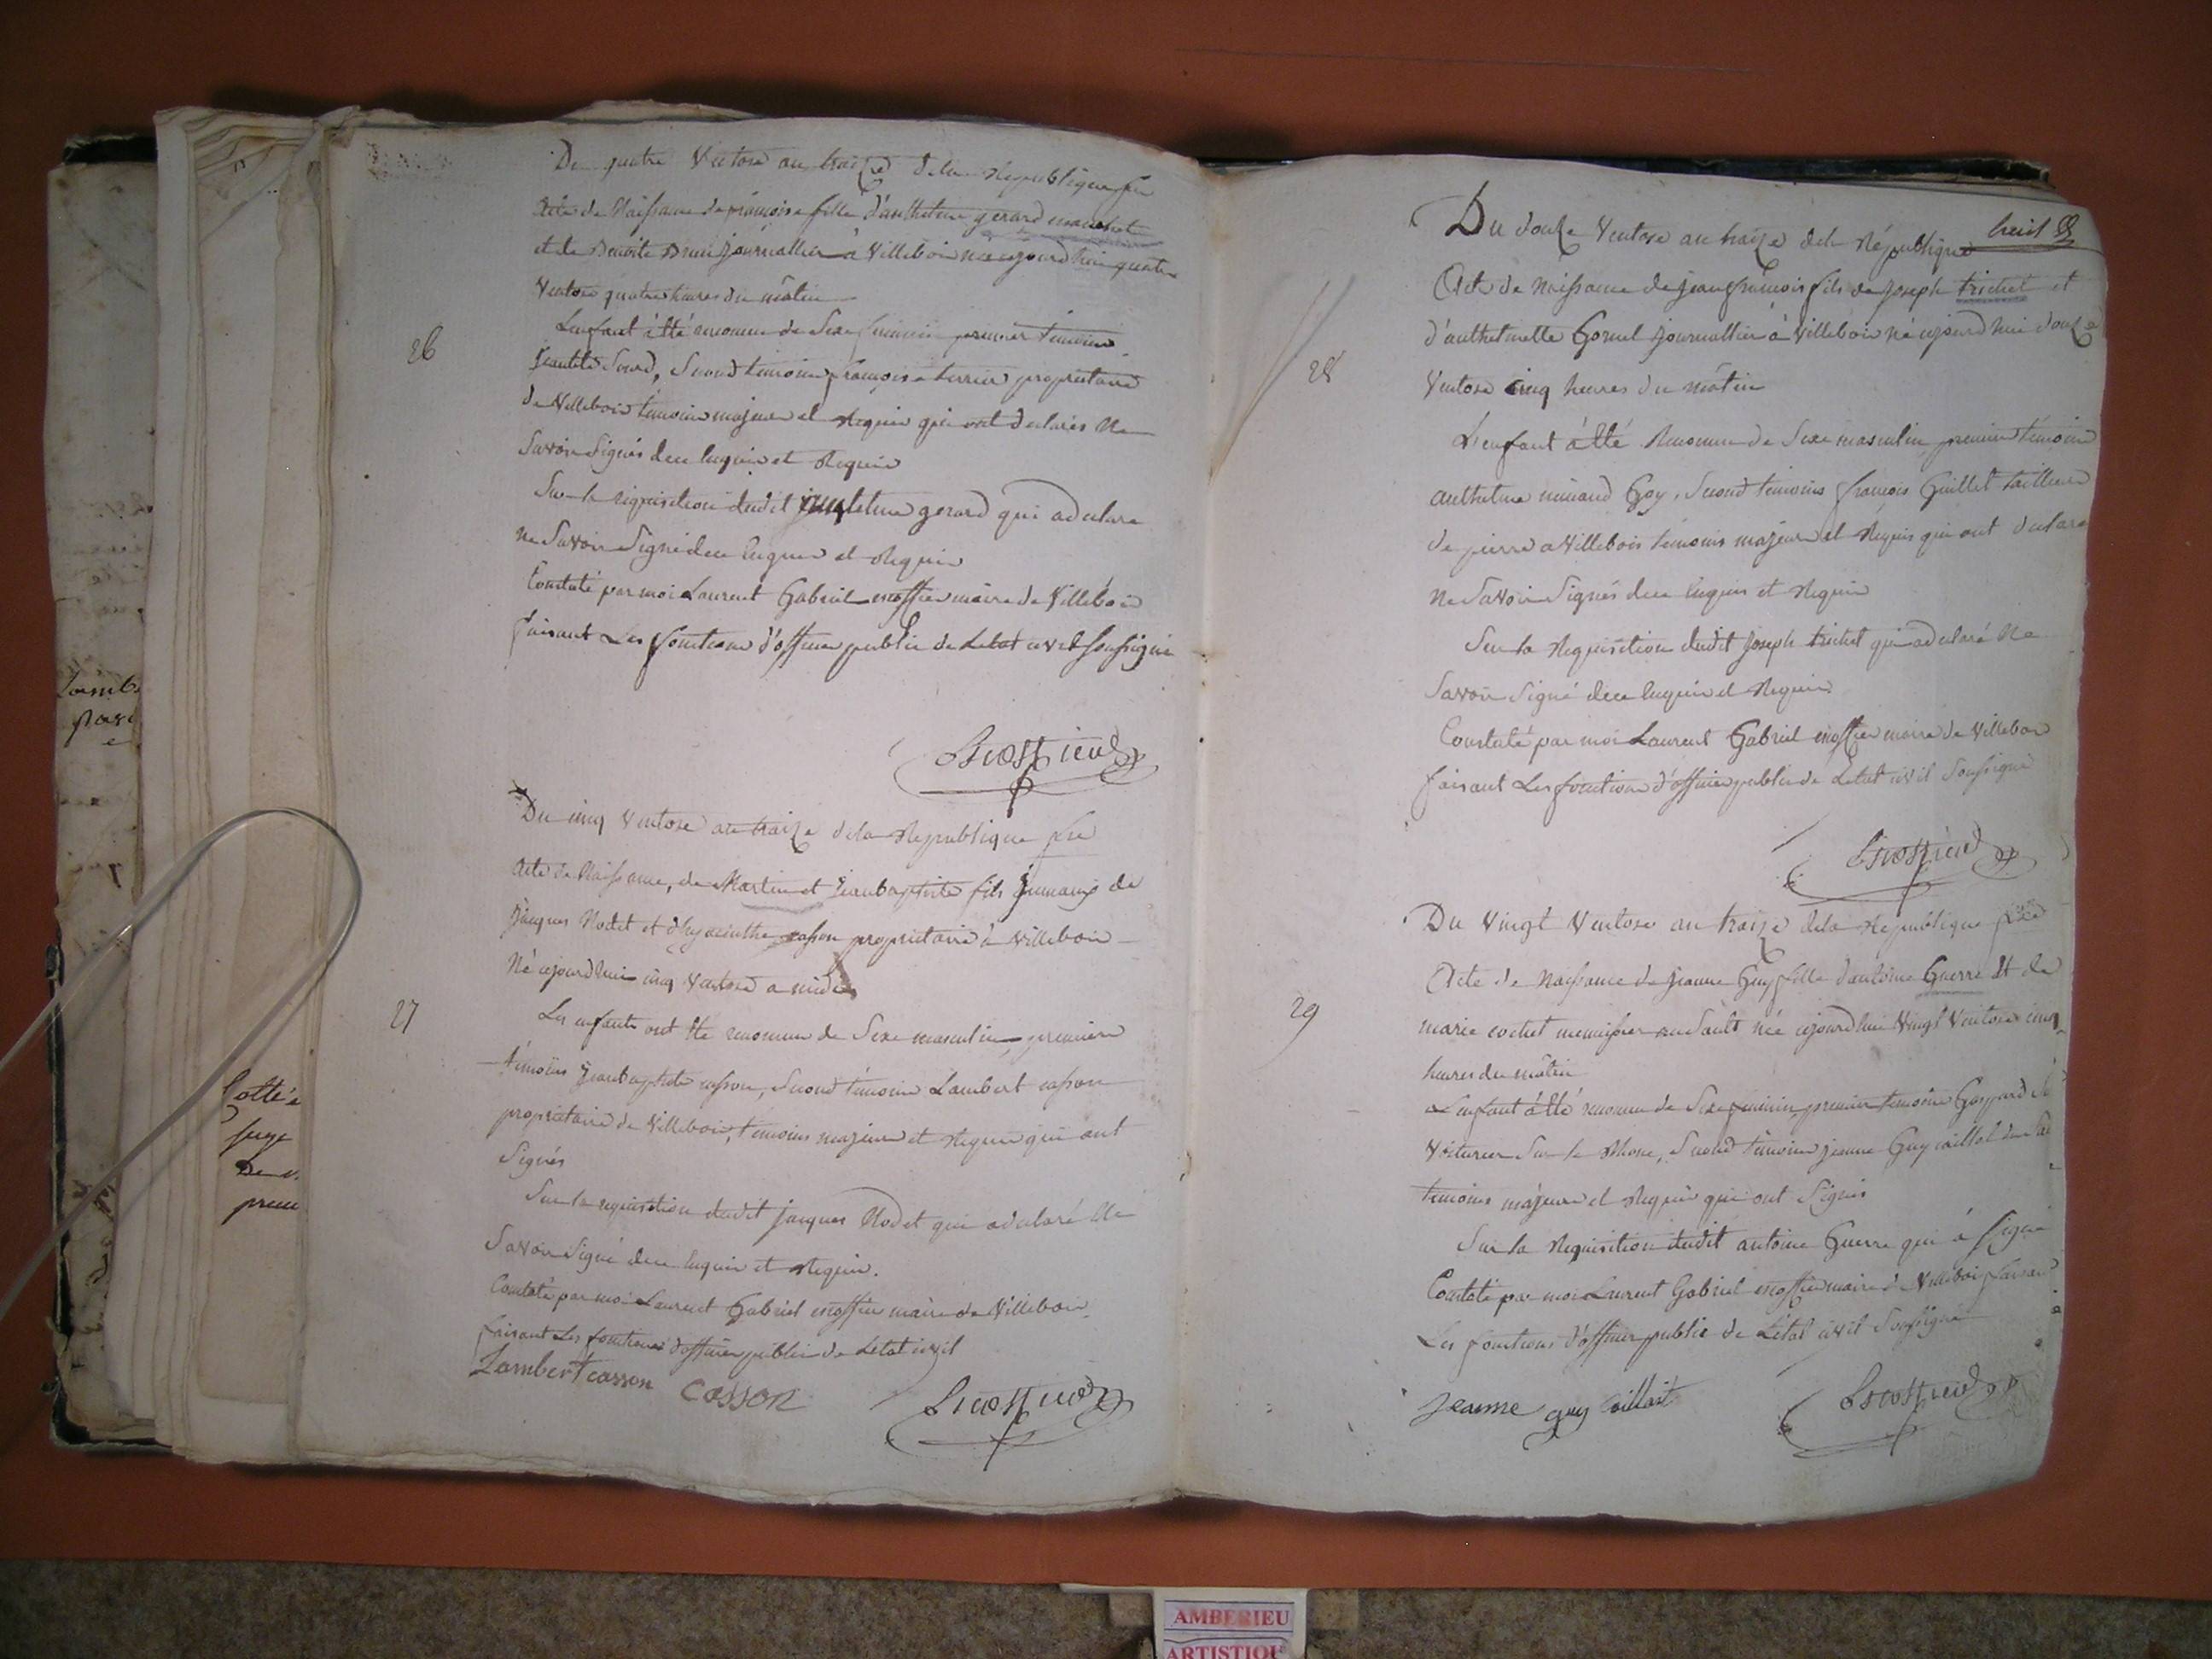 Du quatre Ventose an treize dela Republique fse
Acte de Naissance de françoise fille d'anthelme gerard
et de Benoite journallier à Villebois née cejourdhui quatre
Ventose quatre heures du matin
26
L'enfant à été reconnu de Sexe feminin premier temoin
Second temoin françoise terrier propriétaire
de Villebois temoins majeurs et Requis qui ont declarés Ne
Savoir Signés dece Enquis et Requis
Sur la requisition dudit anthelme gerard qui a declare
ne Savoir Signé dece Enquis et Requis
Constaté par moi Laurent Gabriel maire de Villebois
faisant Les fonctions d'officier public de Letat civil Soussigné
Du cinq Ventose an treize dela Republique fse
Acte de Naissance, de Martin et Jeanbaptiste fils jumaux de
Jacques Nodet et d'hyacinthe casson propriétaire à Villebois
Né cejourdhui cinq Ventose a midi
27
Les enfants ont été reconnu de Sexe masculin, premier
témoins Jeanbaptiste casson, Second témoin Lambert casson
propriétaire de Villebois, témoins majeurs et Requis qui ont
Signés
Sur la requisition dudit jacques Nodet qui a declaré Ne
Savoir Signé dece Enquis et Requis.
Constaté par moi Laurent Gabriel maire de Villebois
faisant Les fonctions d'officier public de Letat civil
Lambert casson casson
Lamb
Cotté
juge
De
huit
Du douze Ventose an treize dela République
Acte de Naissance de jean françois fils de Joseph trichet et
d'anthelmette journallier à Villebois né cejourdhui douze
28
Ventose cinq heures du mâtin
L'enfant à été Reconnu de Sexe masculin premier témoin
anthelme Goy, Second témoins françois Guillet tailleur
de pierre a Villebois témoins majeurs et Requis qui ont declare
Ne Savoir Signés dece Enquis et Requis
Sur la Requisition dudit Joseph trichet qui a declaré Ne
Savoir Signé dece Enquis et Requis
Constaté par moi Laurent Gabriel maire de Villebois
faisant Les fonctions d'officier public de Letat civil Soussigné
Du Vingt Ventose an treize dela Republique fse
Acte de Naissance de Jeanne Guy fille d'antoine Guerre et de
29
marie cochet menuisier au Sault née cejourdhui Vingt Ventose cinq
heures du mâtin
L'enfant à été reconnu de Sexe feminin, premier temoin Gaspard
Voiturier Sur le Rhone, Second témoin jeanne Guy caillot du
temoins majeurs et Requis qui ont Signés
Sur la Requisition dudit antoine Guerre qui à Signé
Constaté par moi Laurent Gabriel maire de Villebois faisant
Les fonctions d'officier public de L'état civil Soussigné
jeanne guy caillot
AMBERIEU
ARTISTIQU